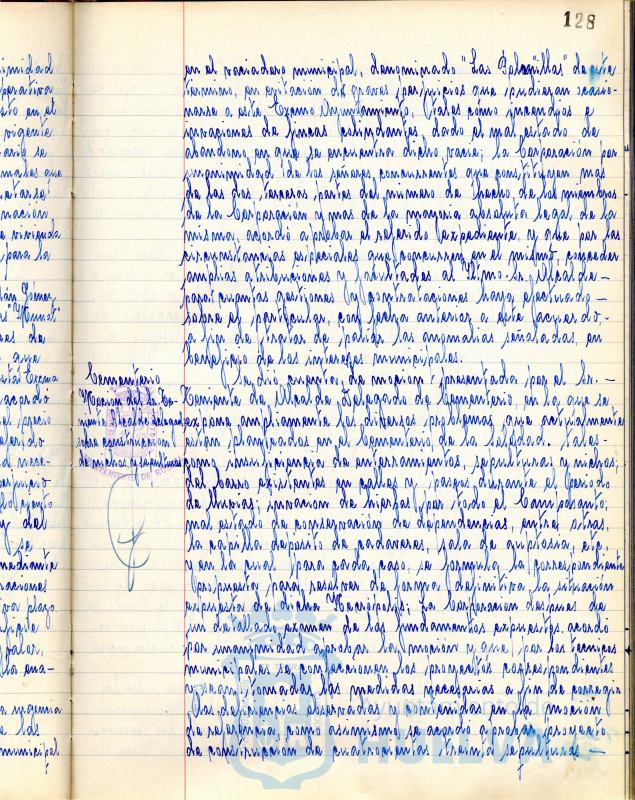 128
en el vaciadero municipal, denominado "Las Polvorillas" de este
término, en evitación de graves perjuicios que pudieran ocasio-
narse a este Excmo Ayuntamiento, tales cómo incendios e
invasiones de fincas colindantes, dado el mal estado de
abandono en que se encuentra dicho vacie; la Corporación por
unanimidad de los señores concurrentes que constituyen mas
de las dos terceras partes del número de hecho de los miembros
de la Corporación y mas de la mayoria absoluta legal de la
misma, acordó aprobar el referido expediente, y que por las
circunstancias especiales que concurren en el mismo, conceder
amplias atribuciones y facultades al Iltmo. Sr. Alcalde-
para cuantas gestiones y contrataciones haya efectuado -
sobre el particular, con fecha anterior a este acuerdo, -
a fin de tratar de paliar las anomalias señaladas, en
beneficio de los intereses municipales.
Cementerio
Moción del Sr. Te-
niente Alcalde Delegado
sobre construcción
de nichos y sepulturas
Se dió cuenta de moción presentada por el Sr. -
Teniente de Alcalde Delegado de Cementerio, en la que se
expone ampliamente los diversos problemas que actualmente
están planteados en el Cementerio de la Soledad. tales-
como insuficiencia de enterramientos, sepulturas y nichos;
del barro existente en calles y paseos durante el periodo
de lluvias; invacion de hierbas por todo el Camposanto;
mal estado de conservación de dependencias, entre otras,
la capilla, depósito de cadáveres, sala de autopsia, etc.
y en la cual, para cada caso, se formula la correspondiente
propuesta para resolver de forma definitiva la situación
expuesta de dicha Necrópolis; la Corporación despues de
un detallado examen de los fundamentos expuestos, acordó
por unanimidad aprobar la moción y que por los técnicos
municipales se confeccionen los proyectos correspondientes
y sean tomadas las medidas necesarias a fin de corregir
las deficiencias observadas y contenidas en la moción
de referencia, como asimismo se acordó aprobar proyecto
de construcción de cuatrocientas treinta sepulturas -